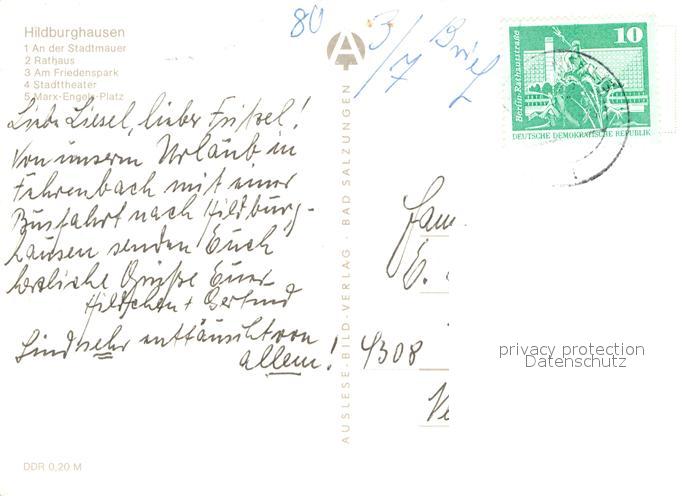 Hildburghausen
1 An der Stadtmauer
2 Rathaus
3 Am Friedenspark
4 Stadttheater
5 Marx-Engels-Platz
Liebe Liesel, lieber Fritzel!
Von unserm Urlaub in
Fehrenbach mit einer
Busfahrt nach Hildburg-
hausen senden Euch
herzliche Grüße Eure
Hildchen + Gertrud
Sind sehr enttäuscht von
allem!
DDR 0,20 M
AUSLESE-BILD-VERLAG · BAD SALZUNGEN
80
3/7 Brief
10
Berlin-Rathausstraße
DEUTSCHE DEMOKRATISCHE REPUBLIK
Fam
E.
4308
privacy protection
Datenschutz